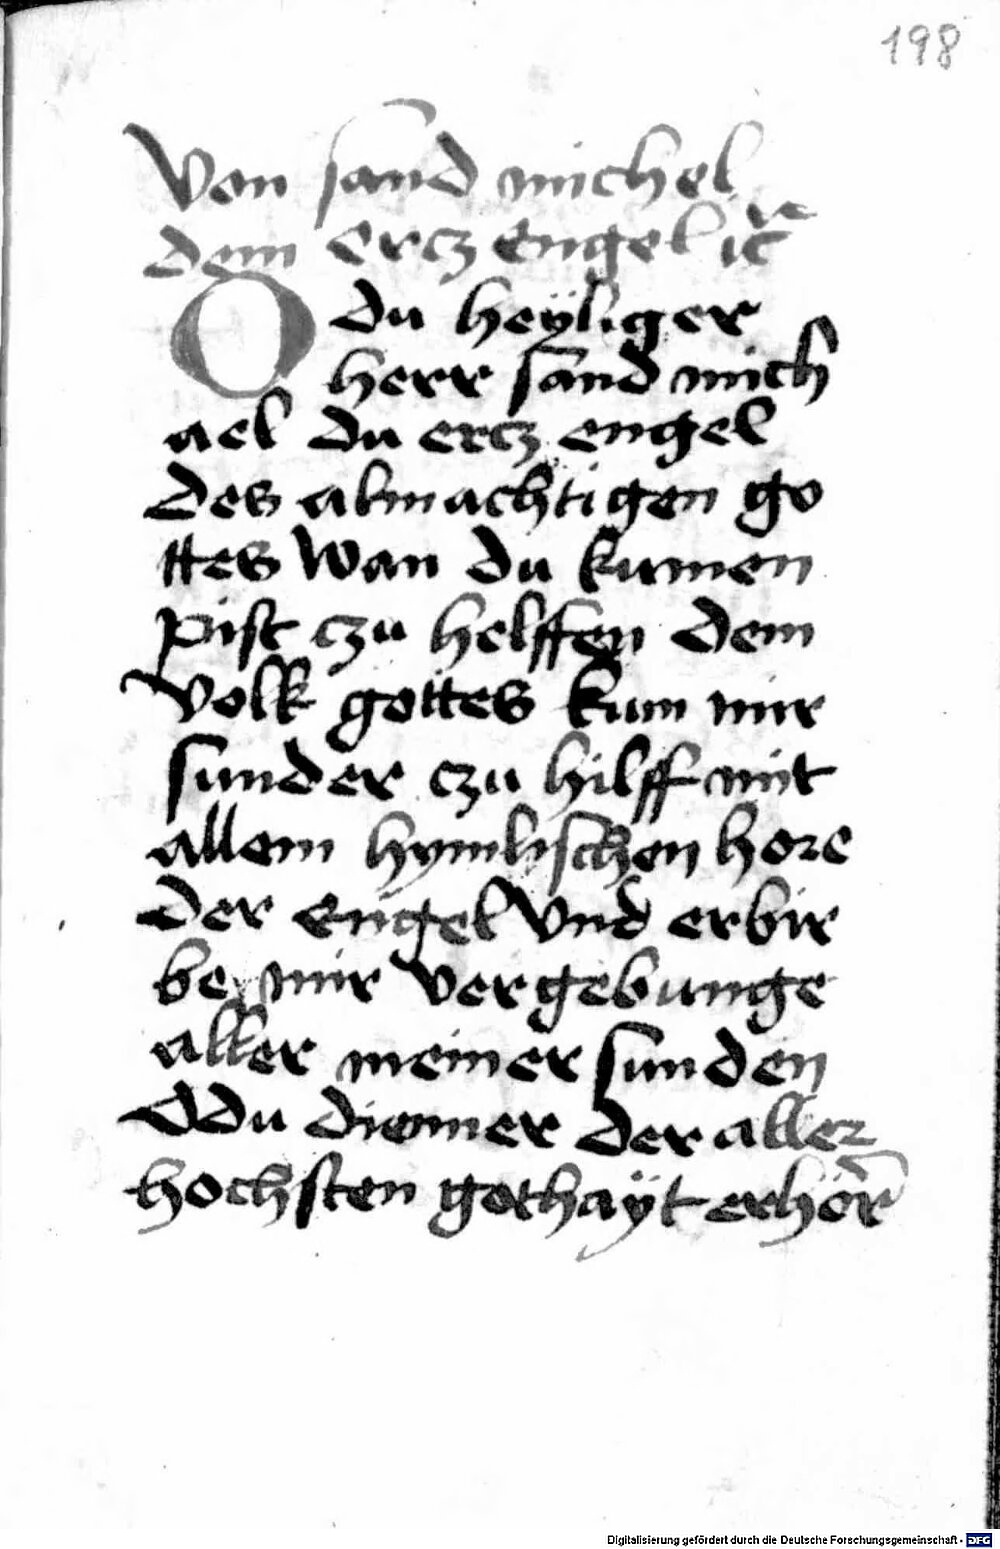 198
Von sand michel
dem ercz engel ic
O du heyliger
herr sand mich
ael du ercz engel
des almachtigen go
ttes wan du kumen
pist czu helffen dem
volk gottes kum mir
sunder czu hilff mit
allem hymlischen hore
der engel vnd erbir
be mir vergebunge
aller meiner sunden
O du diemer der aller
hochsten gothayt erhor
Digitalisierung gefördert durch die Deutsche Forschungsgemeinschaft - DFG